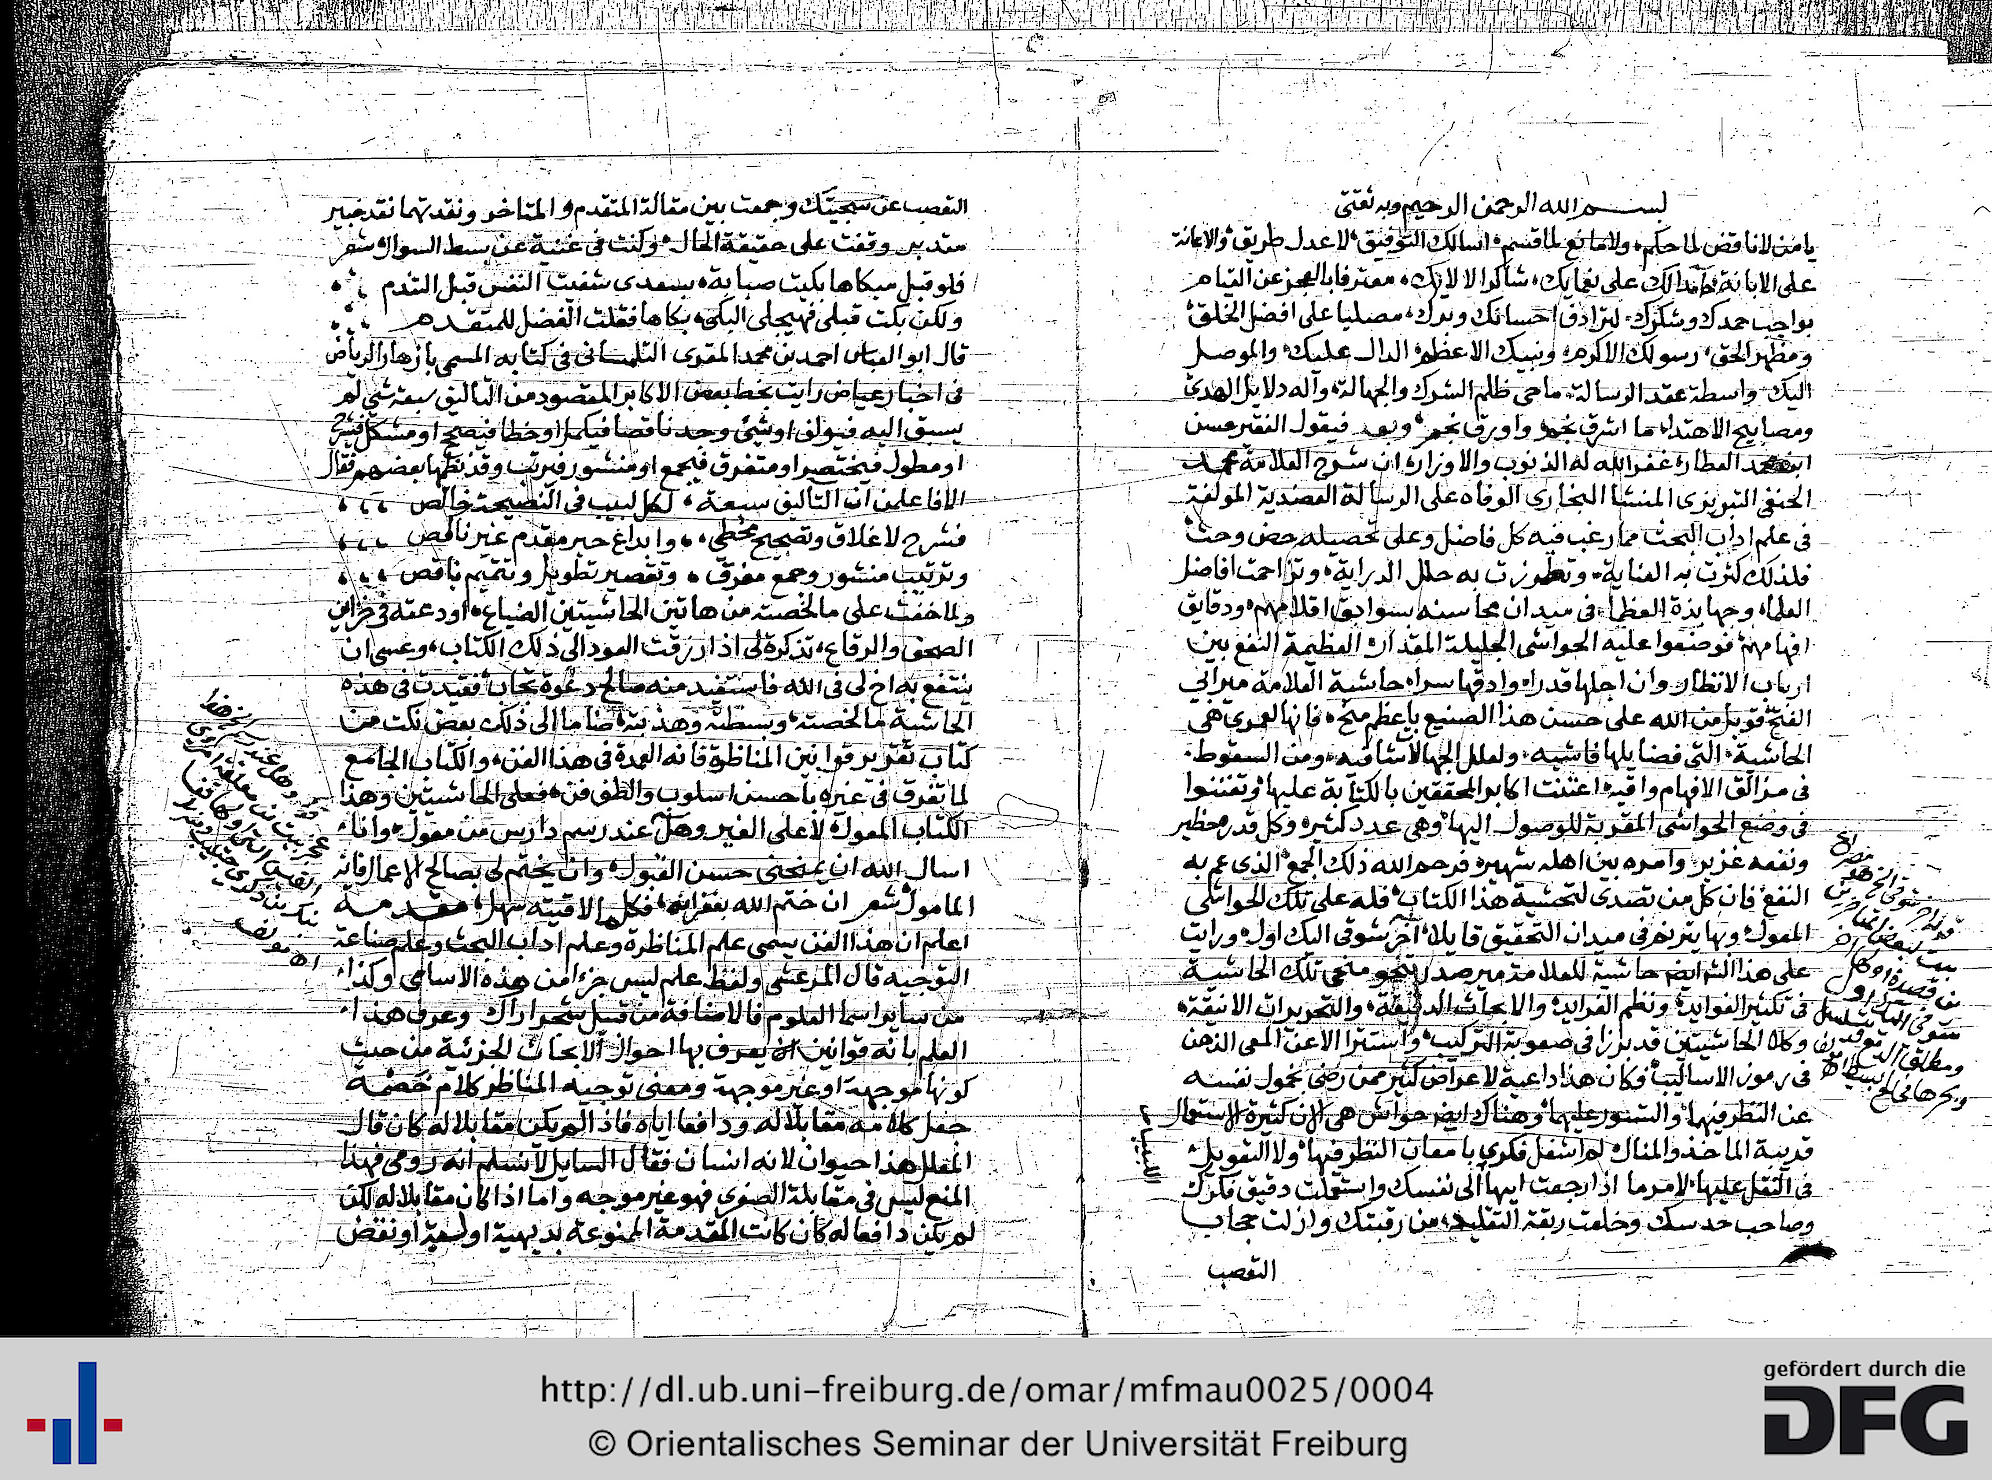 بسم الله الرحمن الرحيم وبه ثقتي
يا من لا ناقض لما حكم ولا مانع لما قسم اسالك التوفيق لاعدل طريق والاعانة
على الابانة حامدا لك على نعمايك شاكرا لالايك معترفا بالعجز عن القيام
بواجب حمدك وشكرك لترادف احسانك وبرك مصليا على افضل الخلق
ومظهر الحق رسولك الاكرم ونبيك الاعظم الدال عليك والموصل
اليك واسطة عقد الرسالة ماحي ظلم الشرك والجهالة وآله دلايل الهدى
ومصابيح الاهتداء ما اشرق نجم واورق نجم وبعد فيقول الفقير حسن
ابن محمد العطار غفر الله له الذنوب والاوزار ان شرح العلامة محمد
الحنفي التبريزي المنشا البخاري الوفاه على الرسالة العضدية المولفة
في علم اداب البحث مما رغب فيه كل فاضل وعلى تحصيله حض وحث
فلذلك كثرت به العناية وتطرزت به حلل الدراية وتزاحمت افاضل
العلماء وجهابذة العظماء في ميدان محاسنه سوابق اقلامهم ودقايق
افهامهم فوضعوا عليه الحواشي الجليلة المقدار العظيمة النفع بين
ارباب الانظار وان اجلها قدرا وادقها سرا حاشية العلامة مير ابي
الفتح قوبل من الله على حسن هذا الصنيع باعظم منح فانها لعمري هي
الحاشية التي فضايلها فاشيه ولعلل الجهالات شافيه ومن السقوط
في مزالق الافهام واقيه اعتنت اكابر المحققين بالكتابة عليها وتفننوا
في وضع الحواشي المقربة للوصول اليها وهي عدد كثيره وكل قدره خطير
ونفعه غزير وامره بين اهله شهير فرحم الله ذلك الجمع الذي عم به
النفع فان كل من تصدى لتحشية هذا الكتاب فله على تلك الحواشي
المعول وبها يترنم في ميدان التحقيق قايلا آخر شوقي اليك اول ورايت
على هذا الشرايض حاشية للعلامة مير صدر تنحو منحى تلك الحاشية
في تكثير الفوايد ونظم الفرايد والابحاث الدقيقة والتحريرات الانيقة
وكلا الحاشيتين قد برزا في صعوبة التركيب واستترا الا عن المعي الذهن
في رموز الاساليب فكان هذا داعية لاعراض كثير ممن رضي بخمول نفسه
عن النظر فيهما والتسور عليهما وهناك ايض حواش هي الان كثيرة الاستعمال
قريبة الماخذ والمنال لم اشغل فكري بامعان النظر فيها ولا التعويل
في النقل عليها لامر ما اذا رجعت ايها الى نفسك واستعملت دقيق فكرك
وصاحب حدسك وخلعت ربقة التقليد من رقبتك وازلت حجاب
التعصب
التعصب عن سجيتك وجمعت بين مقالة المتقدم والمتاخر ونقدتهما نقد خبير
متدبر وقفت على حقيقة الحال وكنت في غنية عن بسط السوال شعر
فلو قبل مبكاها بكيت صبابة بسعدى شفيت النفس قبل التندم
ولكن بكت قبلي فهيج لي البكى بكاها فقلت الفضل للمتقدم
قال ابو العباس احمد بن محمد المقري التلمساني في كتابه المسمى بازهار الرياض
في اخبار عياض رايت بخط بعض الاكابر المقصود من التأليف سبعة شي لم
يسبق اليه فيولف او شيئ وجد ناقصا فيكمل او خطا فيصحح او مشكل فيشرح
او مطول فيختصر او متفرق فيجمع او منثور فيرتب وقد نظمها بعضهم فقال
الا فاعلمن ان التآليف سبعة لكل لبيب في النصيحة خالص
فشرح لاغلاق وتصحيح مخطى وابداع حبر مقدم غير ناكص
وترتيب منثور وجمع مفرق وتقصير تطويل وتتميم ناقص
ولما خفت على ما لخصته من هاتين الحاشيتين الضياع اودعته في خزاين
الصحف والرقاع تذكرة لي اذا رزقت العود الى ذلك الكتاب وعسى ان
ينتفع به اخ لي في الله فاستفيد منه صالح دعوة تجاب فقيدت في هذه
الحاشية ما لخصته وبسطته وهذبته ضاما الى ذلك بعض نكت من
كتاب تقرير قوانين المناظرة فانه العمدة في هذا الفن والكتاب الجامع
لما تفرق في غيره باحسن اسلوب والطف فن فعلى الحاشيتين وهذا
الكتاب المعول لا على الغير وهل عند رسم دارس من معول وانا
اسال الله ان يمنحني حسن القبول وان يختم لي بصالح الاعمال فانه
المامول شعر ان ختم الله بغفرانه فكل ما لاقيته سهل مقدمة
اعلم ان هذا الفن يسمى علم المناظرة وعلم اداب البحث وعلم صناعة
التوجيه قال المرعشي ولفظ علم ليس جزءا من هذه الاسامي وكذا
من ساير اسما العلوم فالاضافة من قبيل شجر اراك وعرف هذا
العلم بانه قوانين يعرف بها احوال الابحاث الجزئية من حيث
كونها موجهة او غير موجهة ومعنى توجيه المناظر كلام خصمه
جعل كلامه مقابلا له ودافعا اياه فاذا لم يكن مقابلا له كان قال
المعلل هذا حيوان لانه انسان فقال السايل لا نسلم انه رومي فهذا
المنع ليس في مقابلة الصغرى فهو غير موجه واما اذا كان مقابلا له لكن
لم يكن دافعا له كان كانت المقدمة الممنوعة بديهية او نقض
http://dl.ub.uni-freiburg.de/omar/mfmau0025/0004
© Orientalisches Seminar der Universität Freiburg
gefördert durch die
DFG